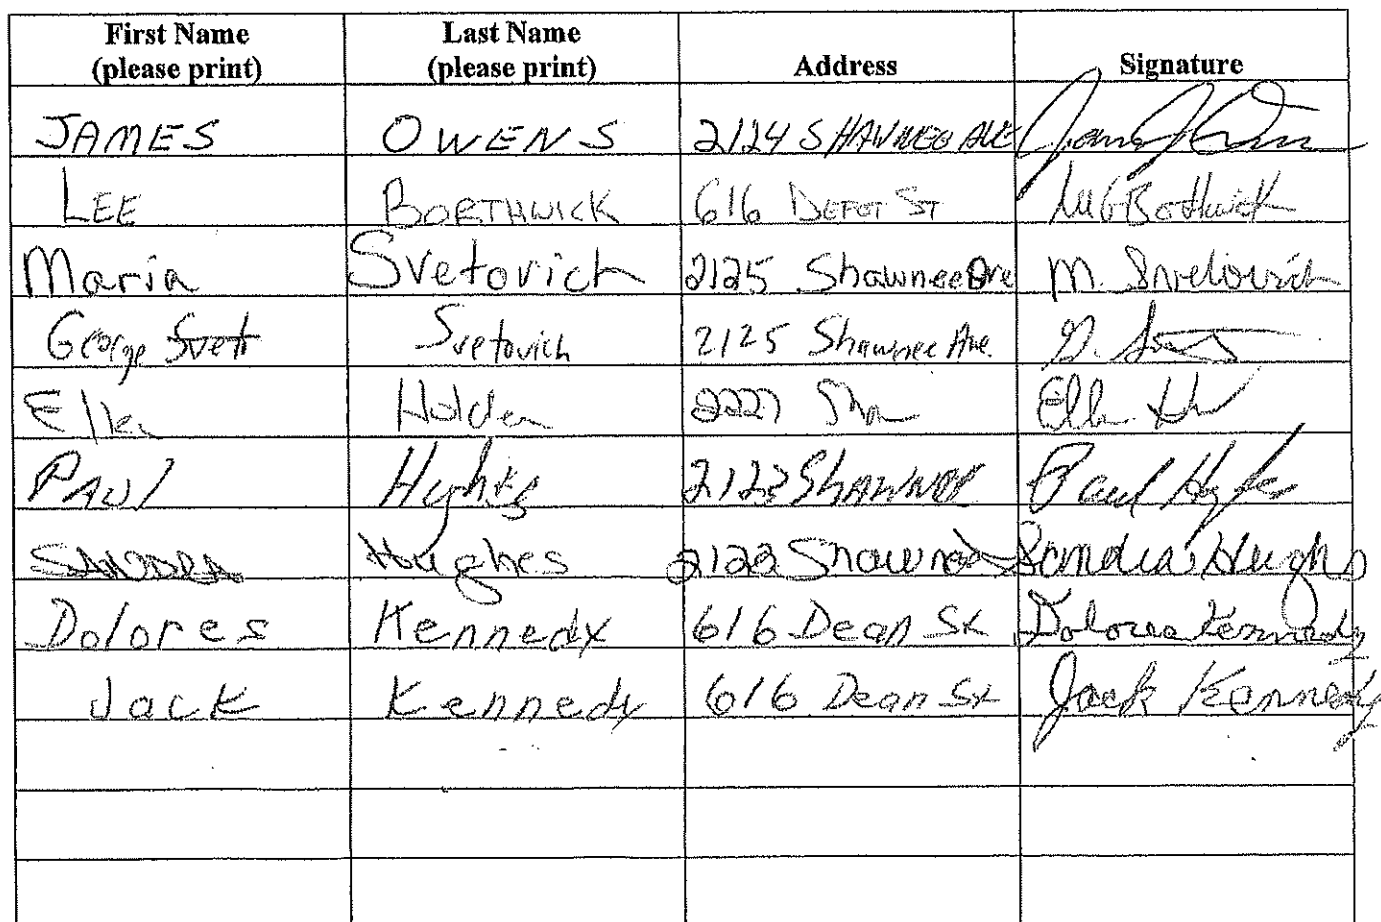 First Name (please print) Last Name (please print) Address Signature
JAMES OWENS 2124 SHAWNEE AVE
LEE BORTHWICK 616 DEPOT ST Borthwick
Maria Svetovich 2125 Shawnee Ave M. Svetovich
George Svett Svetovich 2125 Shawnee Ave. G.
Holden Sha
PAUL Hughes 2122 Shawnee Paul Hughes
SANDRA Hughes 2122 Shawnee Sandra Hughes
Dolores Kennedy 616 Dean St Dolores Kennedy
Jack Kennedy 616 Dean St Jack Kennedy